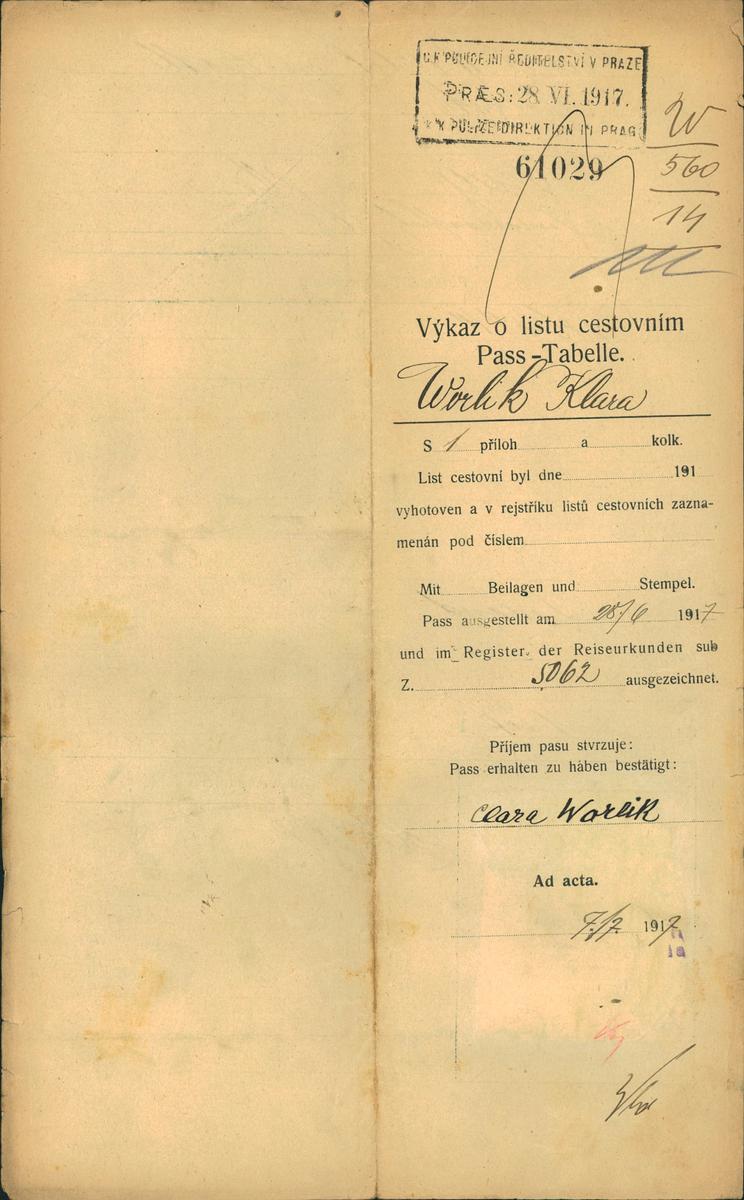 C.K POLICEJNÍ ŘEDITELSTVÍ V PRAZE
PRÆS: 28 VI. 1917.
K K POLIZEIDIREKTION IN PRAG
61029
W
560
14
Výkaz o listu cestovním
Pass-Tabelle.
Worlik Klara
S 1 příloh a kolk.
List cestovní byl dne 191
vyhotoven a v rejstříku listů cestovních zazna-
menán pod číslem
Mit Beilagen und Stempel.
Pass ausgestellt am 28/6 1917
und im Register der Reiseurkunden sub
Z. 5062 ausgezeichnet.
Příjem pasu stvrzuje:
Pass erhalten zu haben bestätigt:
Clara Worlik
Ad acta.
7./7. 1917